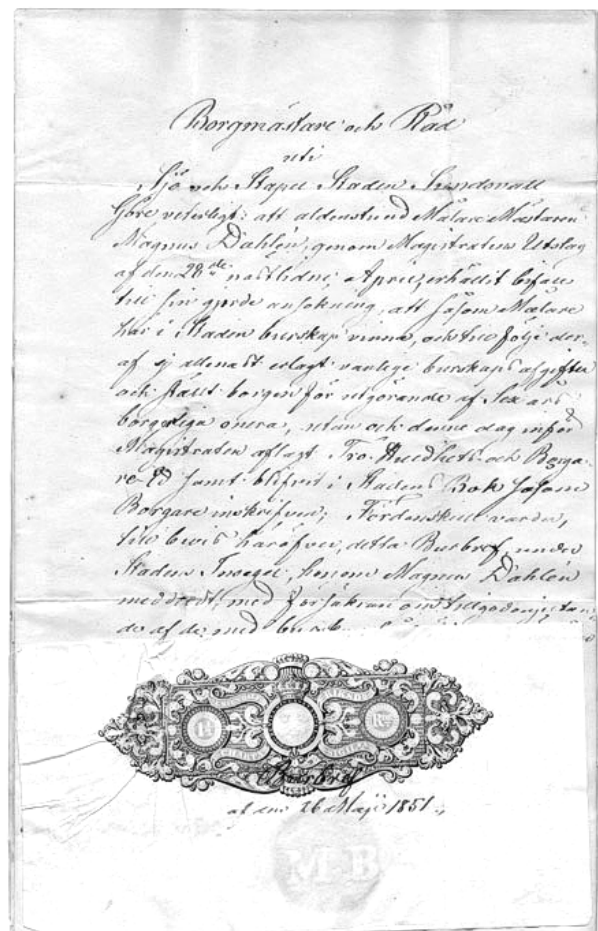 Borgmästare och Råd
uti
Sjö och Stapel Staden Sundsvall
Göre veterligt: att aldenstund Målare Mästaren
Magnus Dahlén, genom Magistratens Utslag
af den 28de nästlidne April, erhållit bifall
till sin gjorde ansökning, att såsom Målare
här i Staden burskap vinna, och till följe der-
af ej allenast erlagt vanlige burskaps afgifter
och ställt borgen för utgörande af Sex års
borgerliga onera, utan och denne dag inför
Magistraten aflagt Tro- Huldhets- och Borga-
re Ed samt blifvit i Stadens Bok såsom
Borgare inskrifven; Fördenskull varder,
till bevis häröfver, detta Burbref under
Stadens Insegel, honom Magnus Dahlén
meddeldt, med försäkran om tillgodonjutan-
de af de med
Burbref
af den 26 Maji 1851.
MB